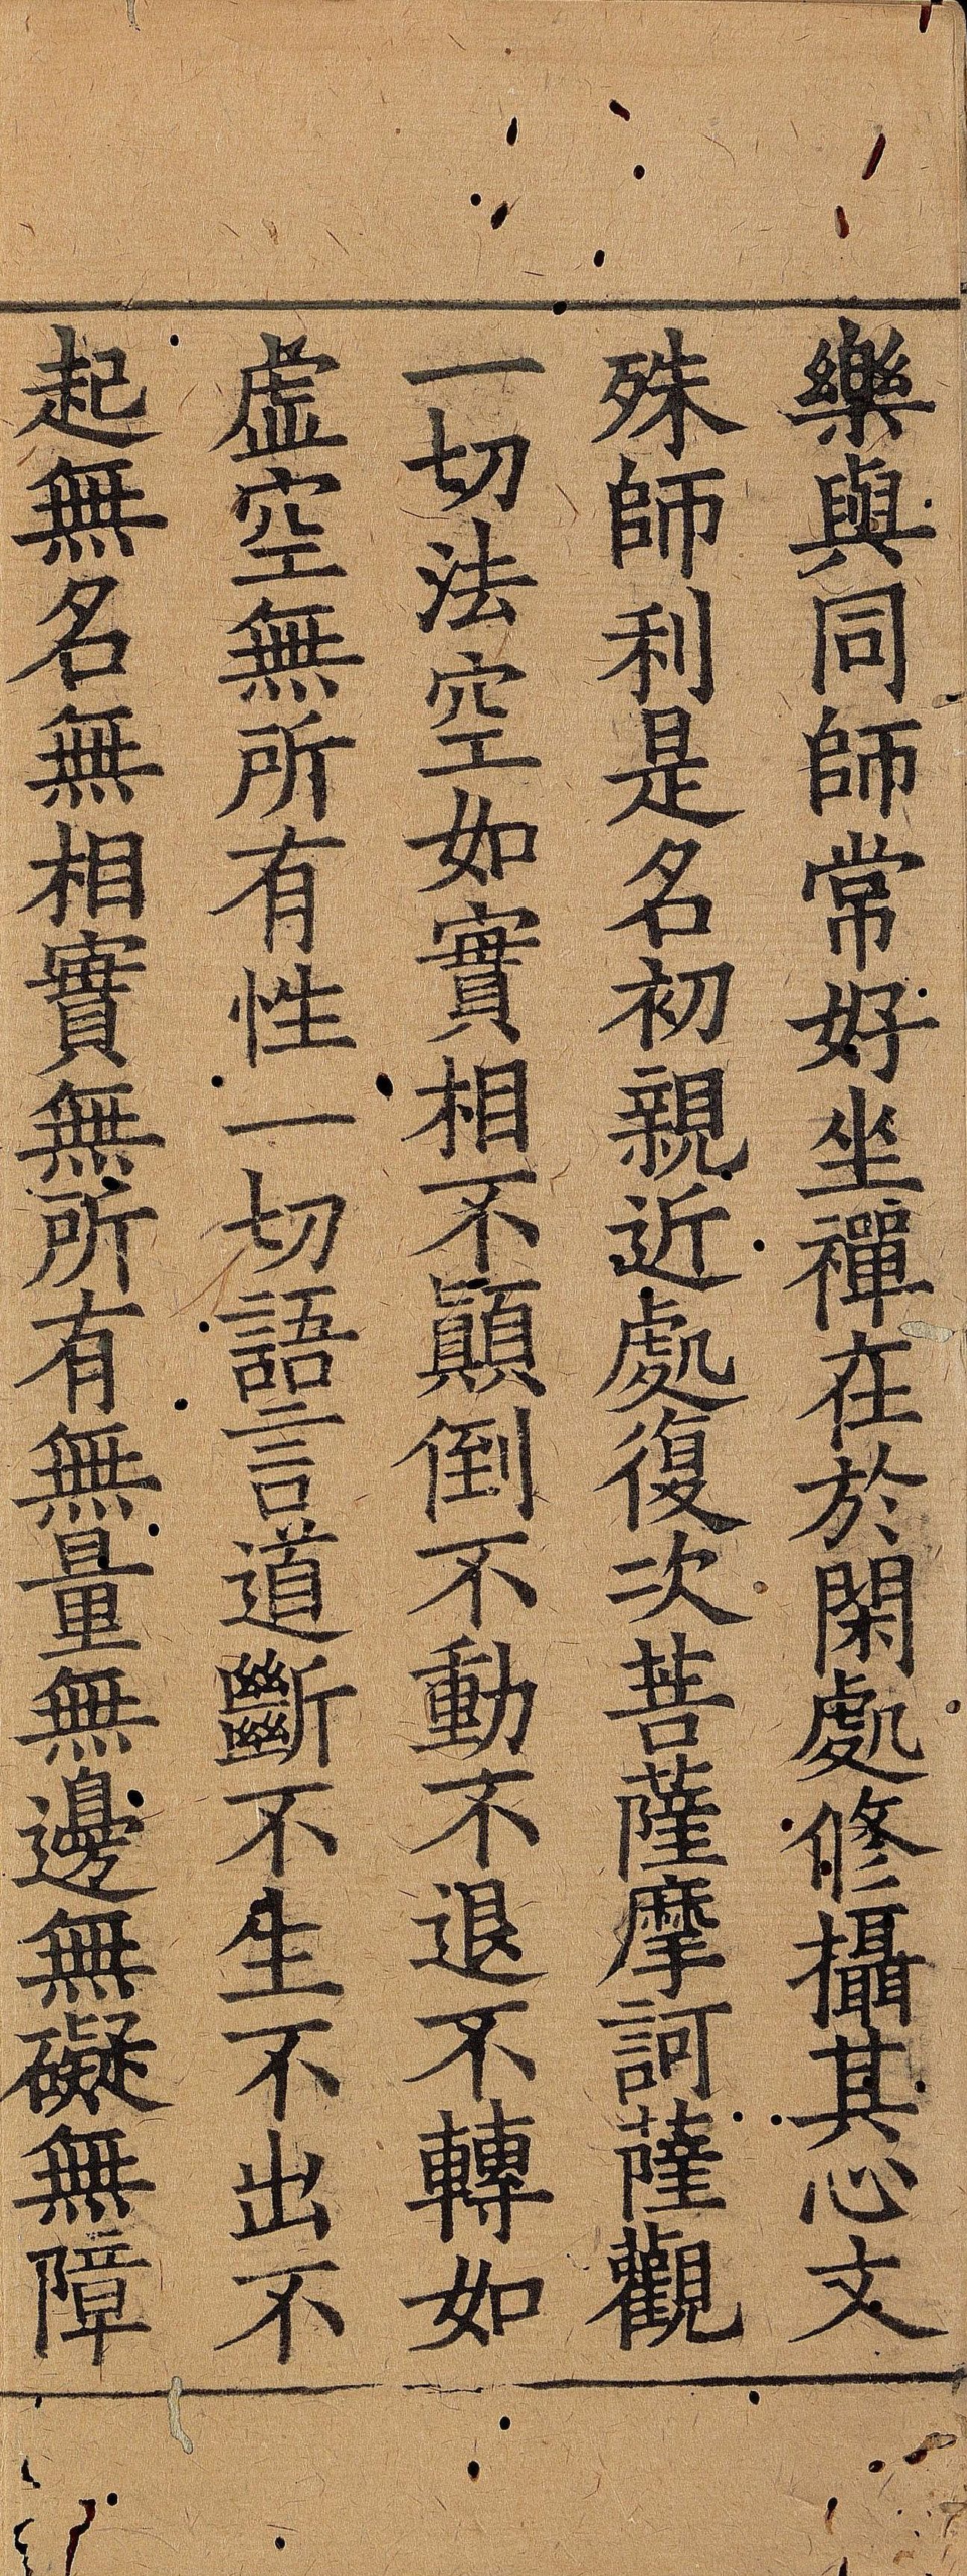 樂與同師常好坐禪在於閑處修攝其心文
殊師利是名初親近處復次菩薩摩訶薩觀
一切法空如實相不顛倒不動不退不轉如
虛空無所有性一切語言道斷不生不出不
起無名無相實無所有無量無邊無礙無障